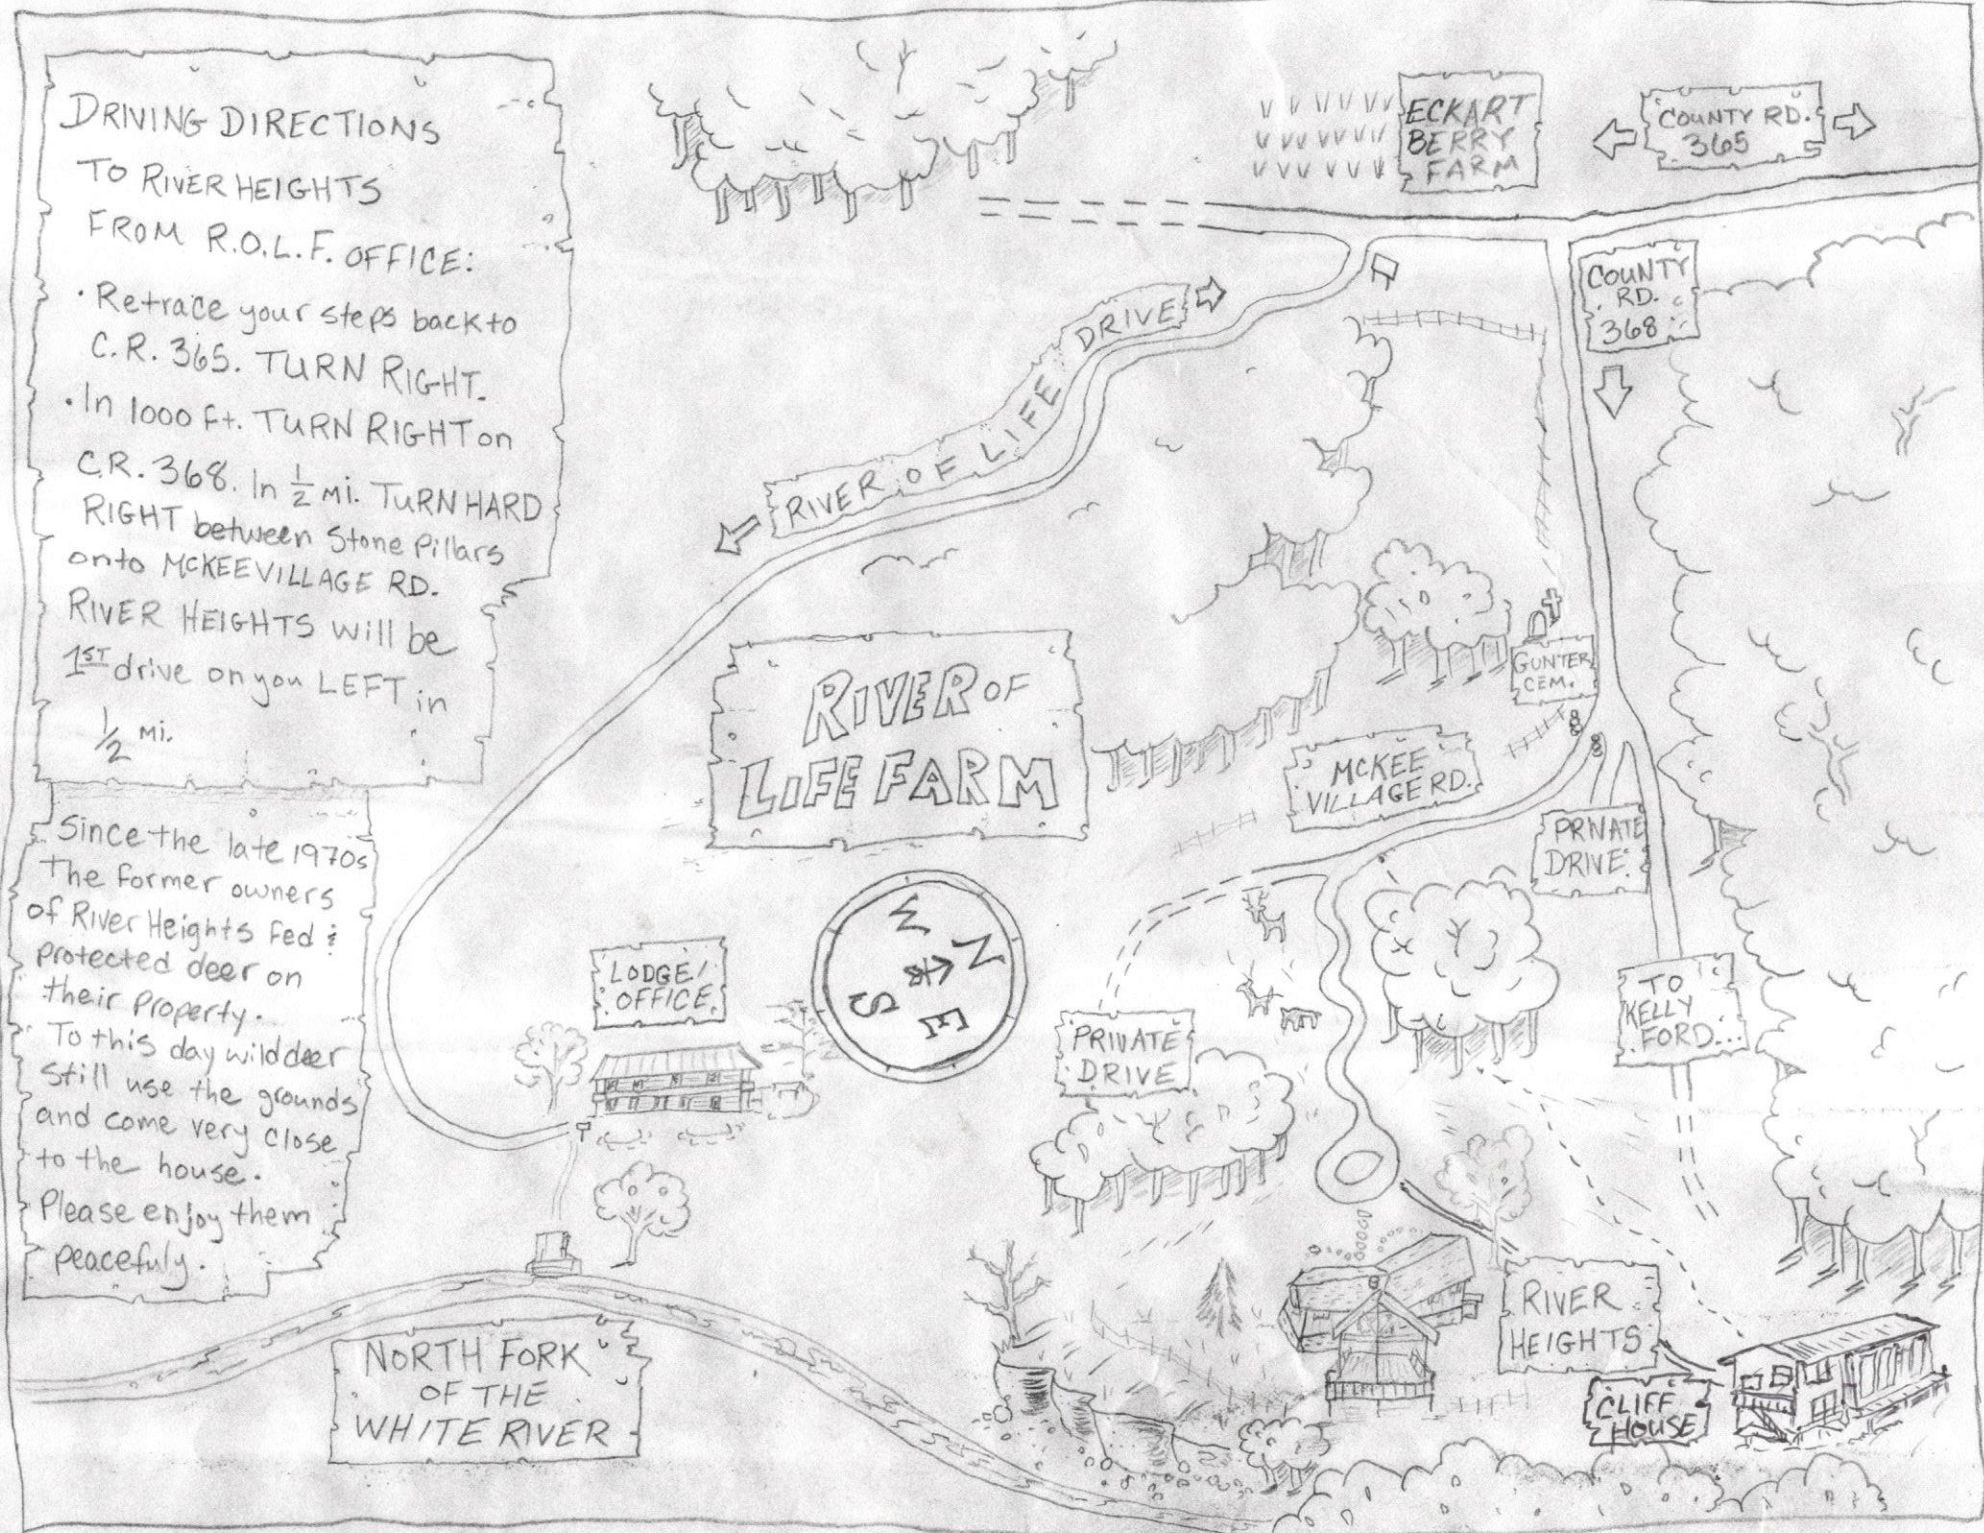 DRIVING DIRECTIONS
TO RIVER HEIGHTS
FROM R.O.L.F. OFFICE:
• Retrace your steps back to
C.R. 365. TURN RIGHT.
• In 1000 ft. TURN RIGHT on
C.R. 368. In 1/2 mi. TURN HARD
RIGHT between Stone Pillars
onto MCKEE VILLAGE RD.
RIVER HEIGHTS will be
1ST drive on you LEFT in
1/2 mi.
Since the late 1970s
the former owners
of River Heights fed &
protected deer on
their property.
To this day wild deer
still use the grounds
and come very close
to the house.
Please enjoy them
peacefuly.
ECKART
BERRY
FARM
COUNTY RD.
365
COUNTY
RD.
368
RIVER OF LIFE DRIVE
RIVER OF
LIFE FARM
GUNTER
CEM.
MCKEE
VILLAGE RD.
PRIVATE
DRIVE
LODGE/
OFFICE
N
W
S
E
PRIVATE
DRIVE
TO
KELLY
FORD...
RIVER
HEIGHTS
CLIFF
HOUSE
NORTH FORK
OF THE
WHITE RIVER